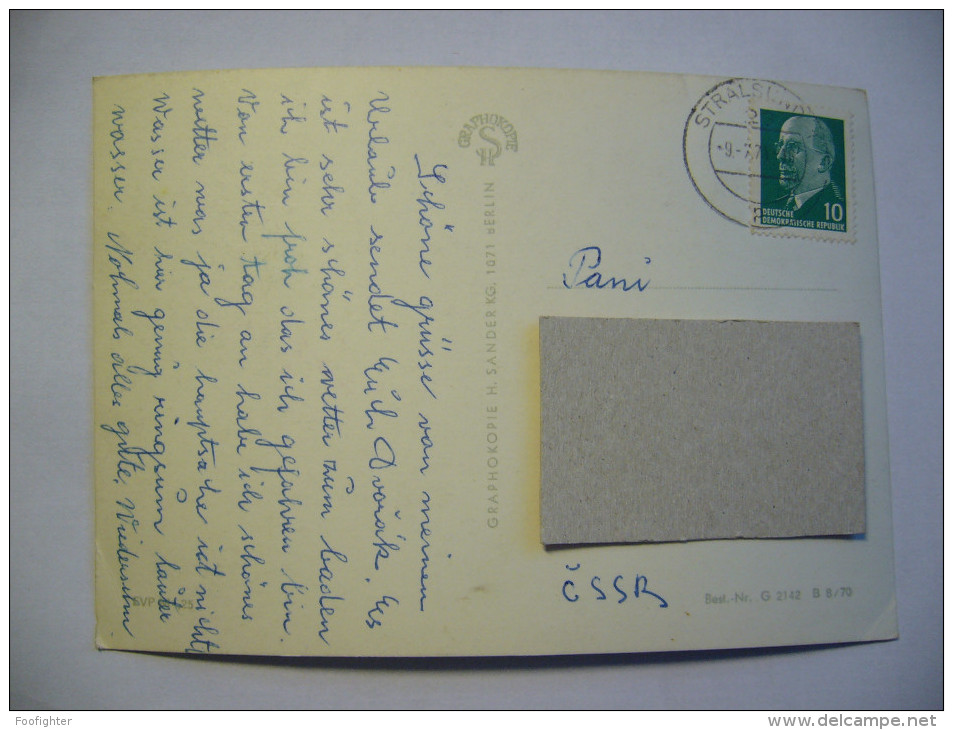 Schöne grüsse von meinem
Urlaub sendet Euch Dvořák. Es
ist sehr schönes wetter zum baden
ich bin froh das ich gefahren bin.
Von ersten tag an habe ich schönes
wetter was ja die hauptsache ist nicht
Wasser ist hier genug ringsum lauter
wasser. Nohmals alles gute, Wiedersehn.
GRAPHOKOPIE
GRAPHOKOPIE H. SANDER KG. 1071 BERLIN
STRALSUND
DEUTSCHE
DEMOKRATISCHE REPUBLIK
10
Paní
ČSSR
Best.-Nr. G 2142 B 8/70
Foofighter
www.delcampe.net